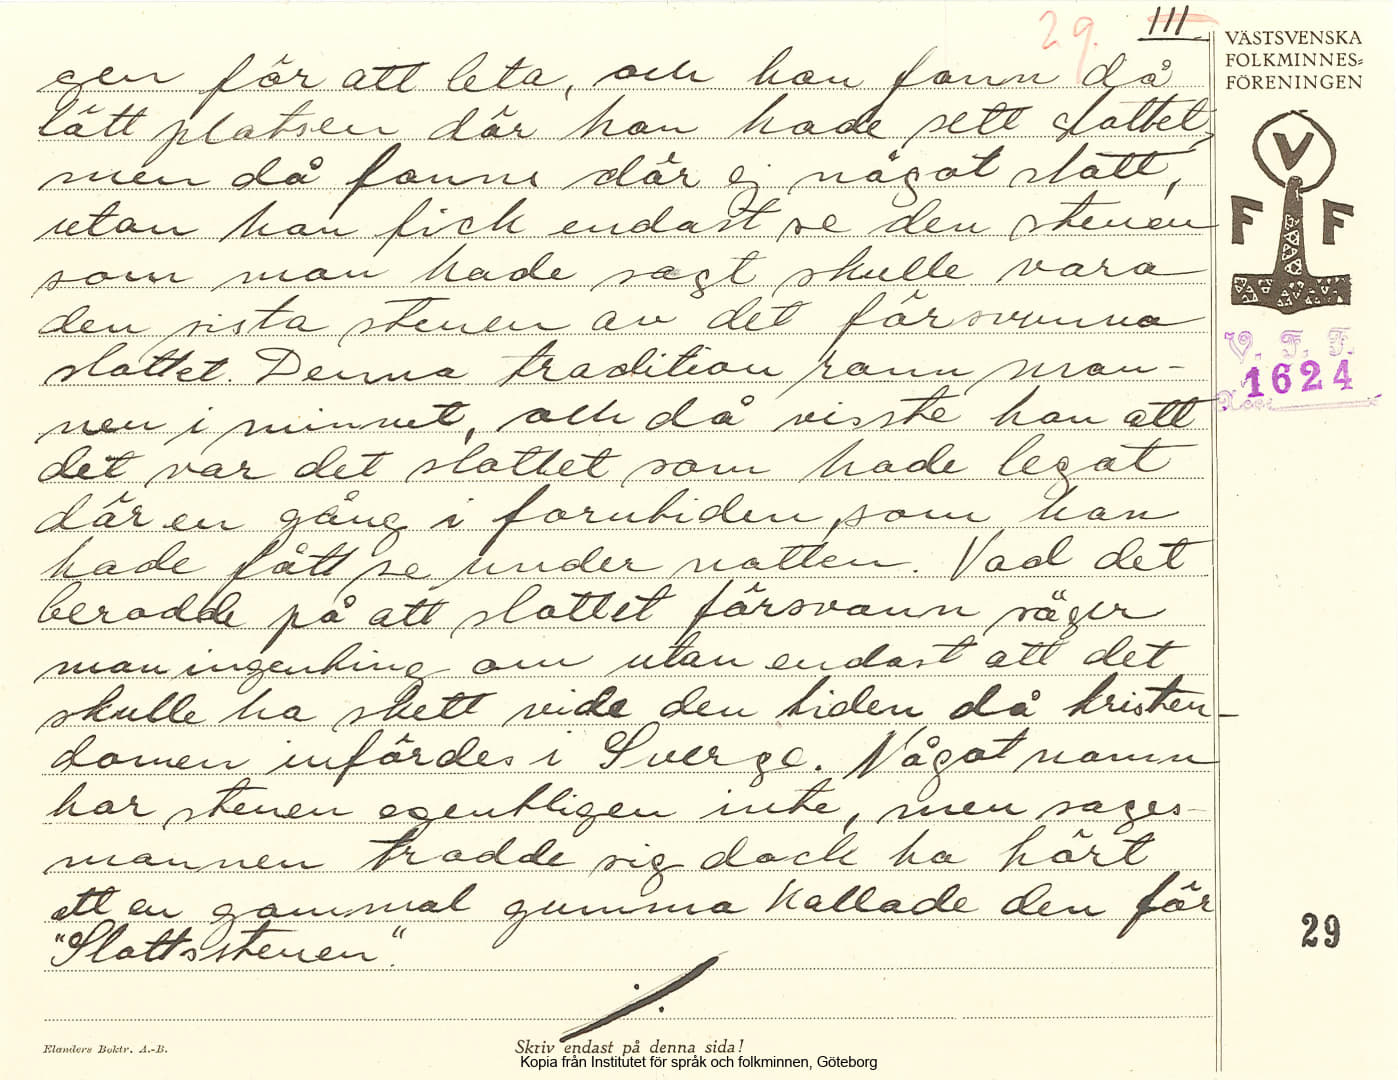 29. III
VÄSTSVENSKA
FOLKMINNES=
FÖRENINGEN
V
F F
V. F. F.
1624
gen för att leta, och han fann då
lätt platsen där han hade sett slottet,
men då fanns där ej något slott,
utan han fick endast se den stenen
som man hade sagt skulle vara
den sista stenen av det försvunna
slottet. Denna tradition rann man-
nen i minnet, och då visste han att
det var det slottet som hade legat
där en gång i forntiden, som han
hade fått se under natten. Vad det
berodde på att slottet försvann säger
man ingenting om utan endast att det
skulle ha skett vide den tiden då kristen-
domen infördes i Sverge. Något namn
har stenen egentligen inte, men sages-
mannen trodde sig dock ha hört
att en gammal gumma kallade den för
"Slottsstenen".
29
Elanders Boktr. A.-B.
Skriv endast på denna sida!
Kopia från Institutet för språk och folkminnen, Göteborg